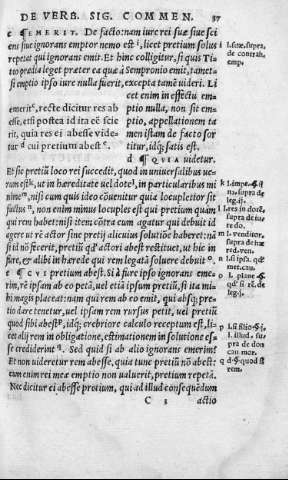 DE VERB. SIG. COMMEN. 37
c ¶EMERIT. De facto: nam iure rei suæ siue sci
ens siue ignorans emptor nemo est i, licet pretium solus
repetat qui ignorans emit. Et hinc colligitur, si quis Ti
tio prædia leget præter ea quæ à Sempronio emit, tamet-
si emptio ipso iure nulla fuerit, excepta tamē uideri. Li
cet enim in effectu em-
emerit, recte dicitur res ab
ptio nulla, non sit em-
esse, etsi postea id ita eē scie
ptio, appellationem ta
rit, quia res ei abesse vide
men istam de facto sor
tur d cui pretium abest e.
titur, idq; satis est.
d ¶QVIA uidetur.
Et sic pretiū loco rei succedit, quod in uniuersalibus ue-
rum est k, ut in hæreditate uel dote l, in particularibus mi
nime m, nisi cum quis ideo cōuenitur quia locupletior sit
factus n, non enim minus locuples est qui pretium quàm
qui rem habet: nisi item contra eum agatur qui debuit id
agere ut rē actor sine pretij alicuius solutiōe haberet: nā
si id nō fecerit, pretiū qd' actori abest restituet, ut hic in
fine, & alibi in hærede qui rem legatā soluere debuit o.
e ¶CVI pretium abest. Si à iure ipso ignorans eme-
rim, rē ipsam ab eo petā, uel etiā ipsum pretiū, si ita mi-
hi magis placeat: nam qui rem ab eo emit, qui absq; pre-
tio dare tenetur, uel ipsam rem rursus petit, uel pretiū
quod sibi abest p, idq; crebriore calculo receptum est, li-
cet alij rem in obligatione, estimationem in solutione es-
se crediderint q. Sed quid si ab alio ignorans emerim?
Et non uideretur rem abesse, quia tunc pretiū nō abest:
cum enim rei meæ emptio non ualuerit, pretium repetā.
Nec dicitur ei abesse pretium, qui ad illud consequēdum
C 5 actio
i l. suæ, supra,
de contrah.
emp.
supra de
leg. ij.
supra de iure
do.
supra de hæ
red.
supra de don
con mor.
rem.